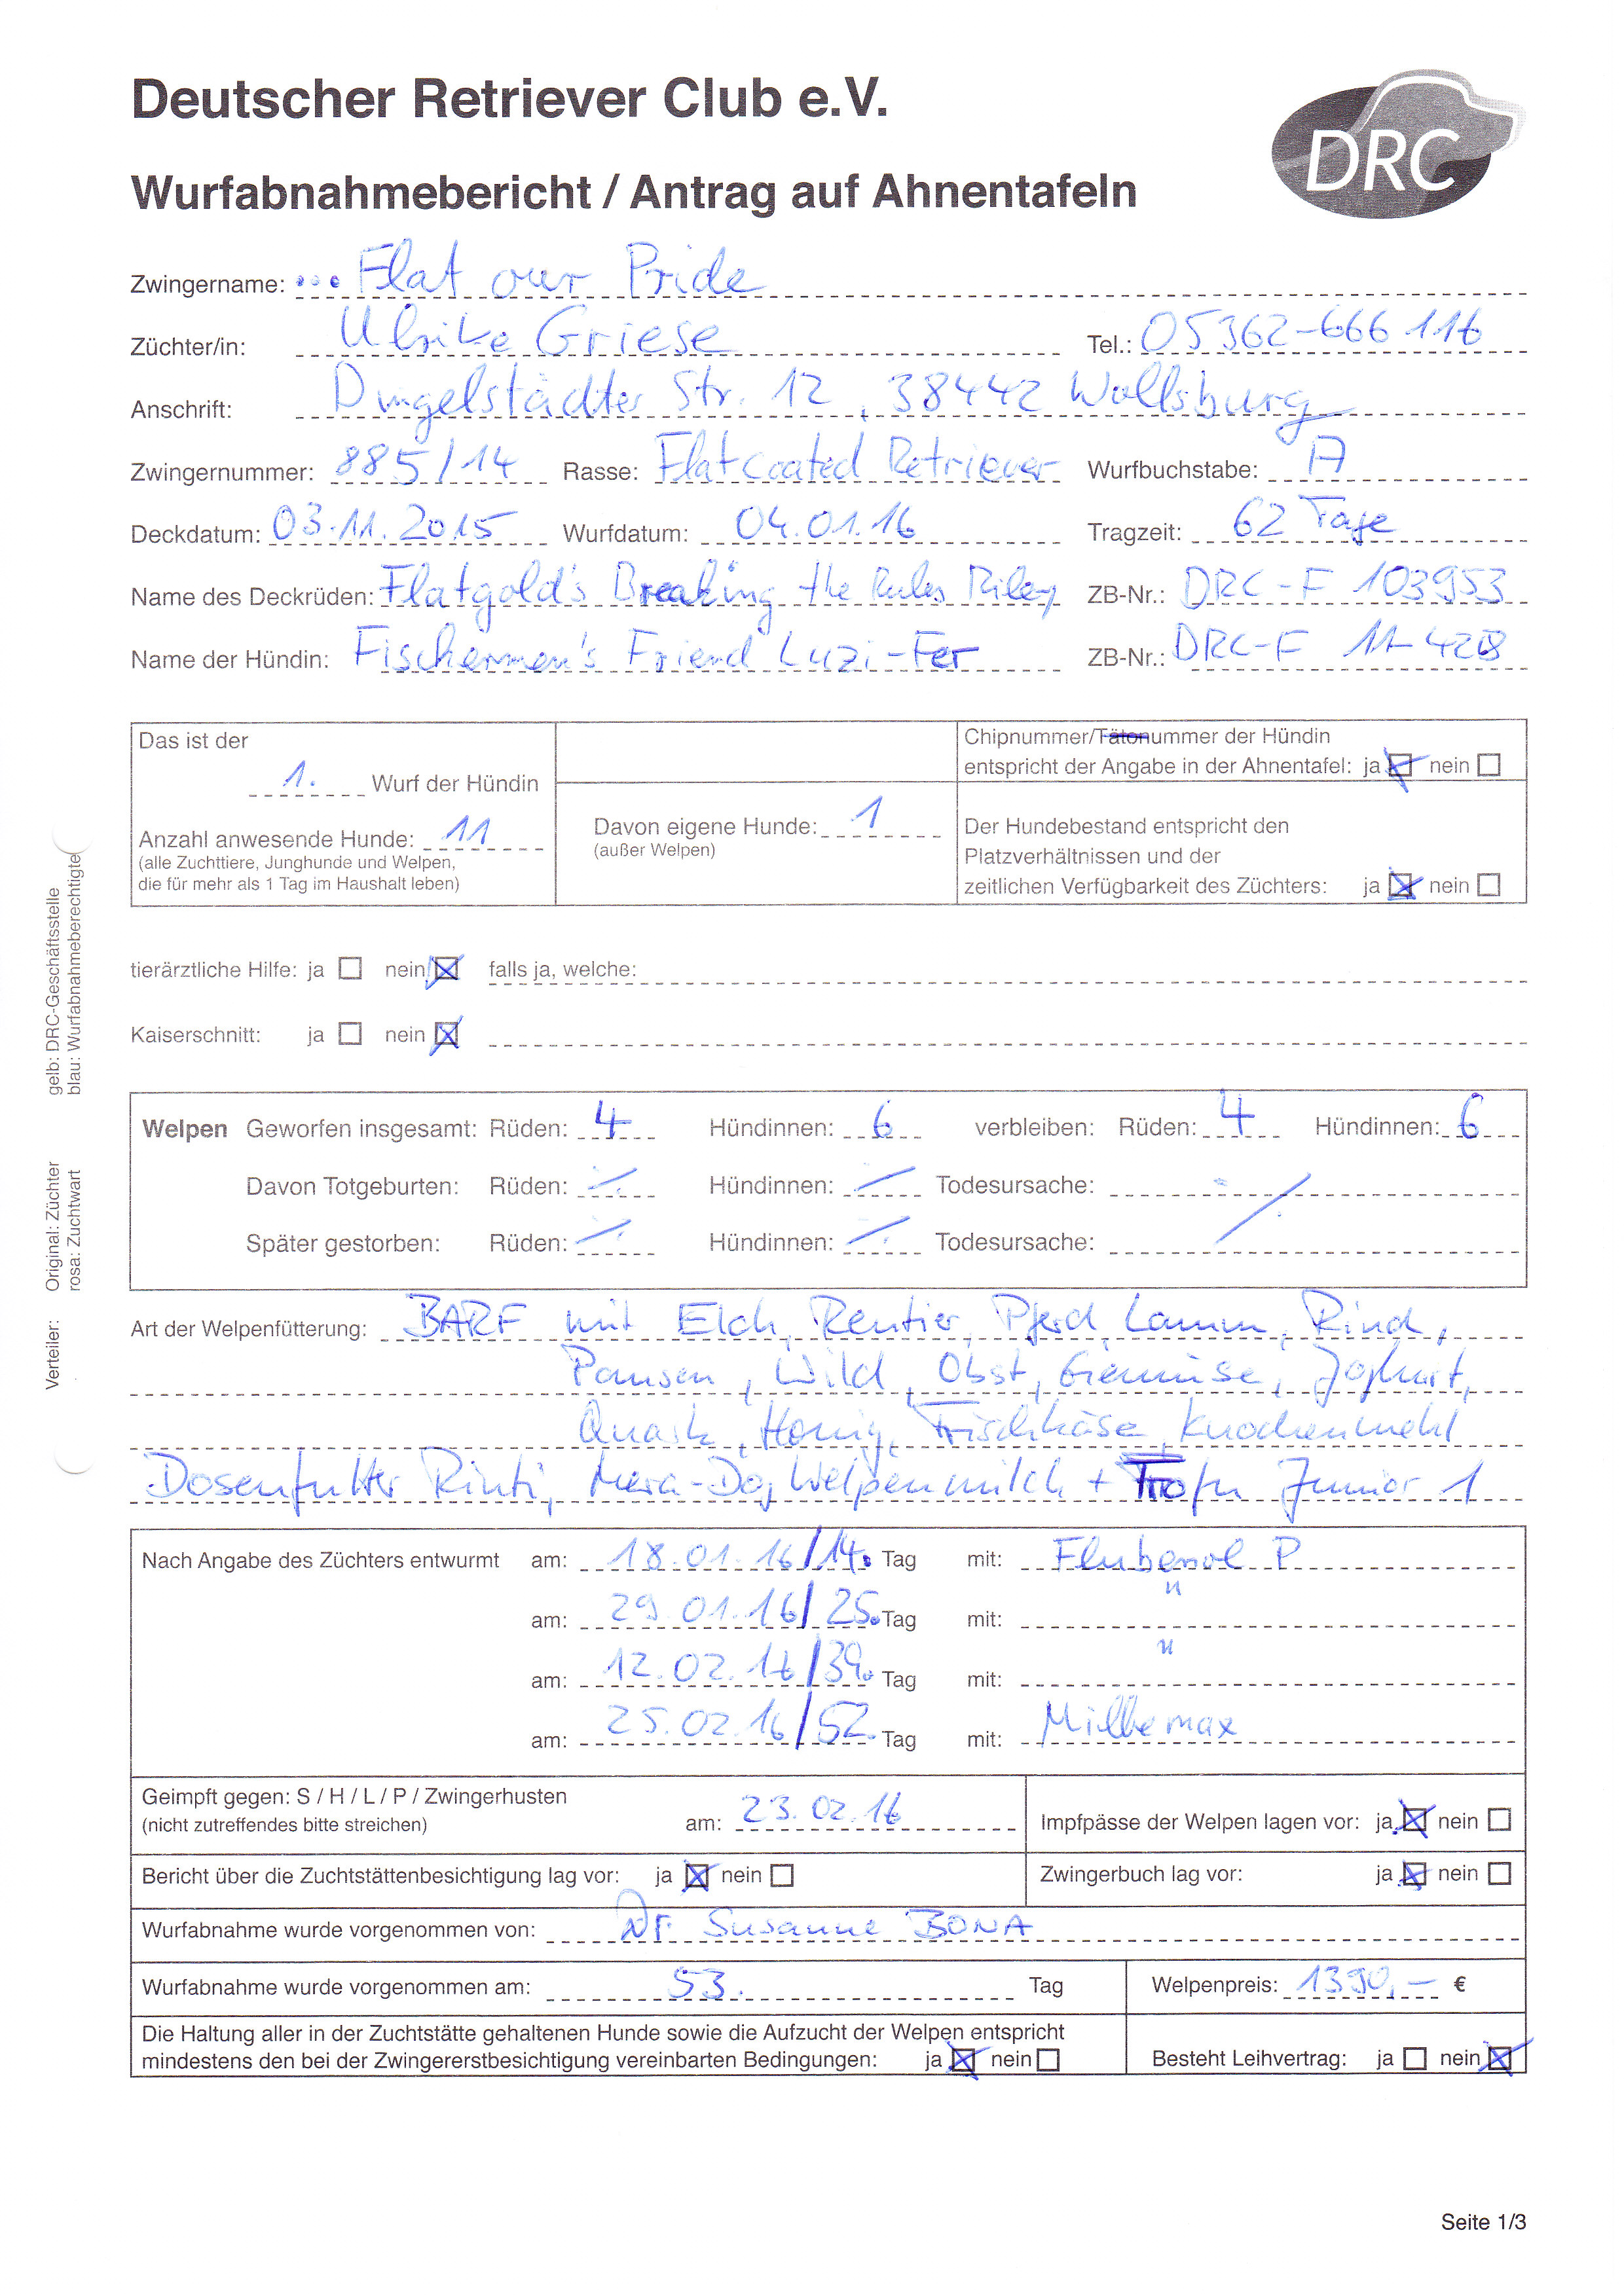 Deutscher Retriever Club e.V.
DRC
Wurfabnahmebericht / Antrag auf Ahnentafeln
Zwingername: ... Flat our Pride
Züchter/in: Ulrike Griese Tel.: 05362-666 116
Anschrift: Dingelstädter Str. 12, 38442 Wolfsburg
Zwingernummer: 885/14 Rasse: Flatcoated Retriever Wurfbuchstabe: A
Deckdatum: 03.11.2015 Wurfdatum: 04.01.16 Tragzeit: 62 Tage
Name des Deckrüden: Flatgold's Breaking the Rules Riley ZB-Nr.: DRC-F 103953
Name der Hündin: Fischermen's Friend Luzi-Fer ZB-Nr.: DRC-F 11-428
Das ist der
1. Wurf der Hündin
Anzahl anwesende Hunde: 11
(alle Zuchttiere, Junghunde und Welpen,
die für mehr als 1 Tag im Haushalt leben)
Davon eigene Hunde: 1
(außer Welpen)
Chipnummer/Tätonummer der Hündin
entspricht der Angabe in der Ahnentafel: ja ☒ nein ☐
Der Hundebestand entspricht den
Platzverhältnissen und der
zeitlichen Verfügbarkeit des Züchters: ja ☒ nein ☐
tierärztliche Hilfe: ja ☐ nein ☒ falls ja, welche:
Kaiserschnitt: ja ☐ nein ☒
Welpen Geworfen insgesamt: Rüden: 4 Hündinnen: 6 verbleiben: Rüden: 4 Hündinnen: 6
Davon Totgeburten: Rüden: ./. Hündinnen: ./. Todesursache: ./.
Später gestorben: Rüden: ./. Hündinnen: ./. Todesursache:
Art der Welpenfütterung: BARF mit Elch, Rentier, Pferd, Lamm, Rind,
Pansen, Wild, Obst, Gemüse, Joghurt,
Quark, Honig, Frischkäse, Knochenmehl
Dosenfutter Rinti, Mera-Dog Welpenmilch + Junior 1
Nach Angabe des Züchters entwurmt am: 18.01.16/14. Tag mit: Flubenol P
am: 29.01.16/25. Tag mit: "
am: 12.02.16/39. Tag mit: "
am: 25.02.16/52. Tag mit: Milbemax
Geimpft gegen: S / H / L / P / Zwingerhusten
(nicht zutreffendes bitte streichen) am: 23.02.16
Impfpässe der Welpen lagen vor: ja ☒ nein ☐
Bericht über die Zuchtstättenbesichtigung lag vor: ja ☒ nein ☐ Zwingerbuch lag vor: ja ☒ nein ☐
Wurfabnahme wurde vorgenommen von: Dr. Susanne BONA
Wurfabnahme wurde vorgenommen am: 53. Tag Welpenpreis: 1390,- €
Die Haltung aller in der Zuchtstätte gehaltenen Hunde sowie die Aufzucht der Welpen entspricht
mindestens den bei der Zwingererstbesichtigung vereinbarten Bedingungen: ja ☒ nein ☐
Besteht Leihvertrag: ja ☐ nein ☒
Verteiler: Original: Züchter gelb: DRC-Geschäftsstelle
rosa: Zuchtwart blau: Wurfabnahmeberechtigte
Seite 1/3